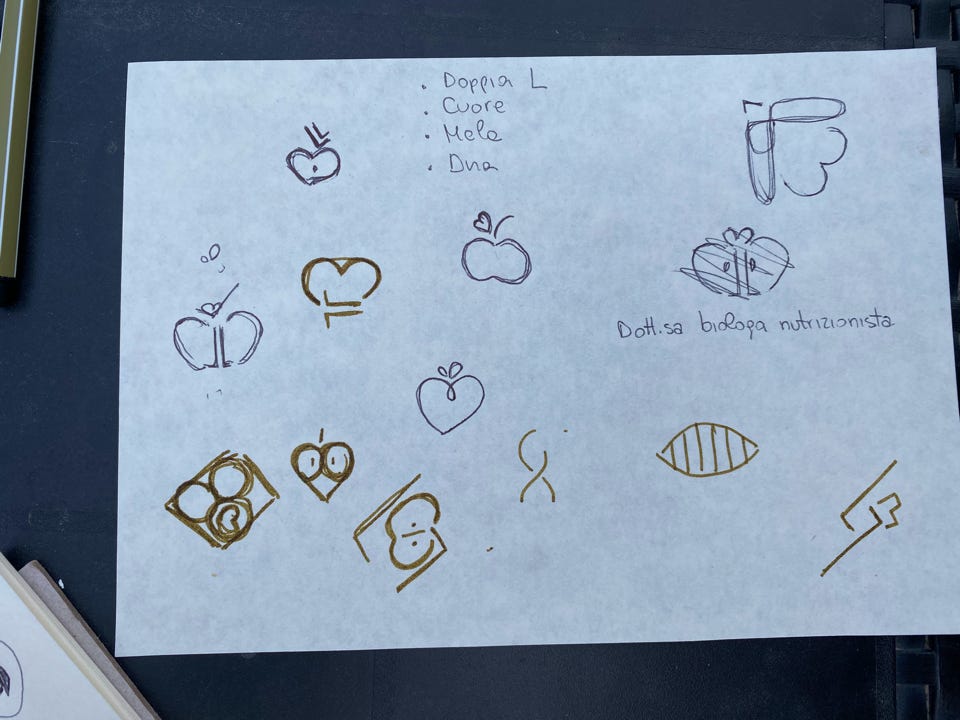 . Doppia L
. Cuore
. Mela
. Dna
Dott.sa biologa nutrizionista